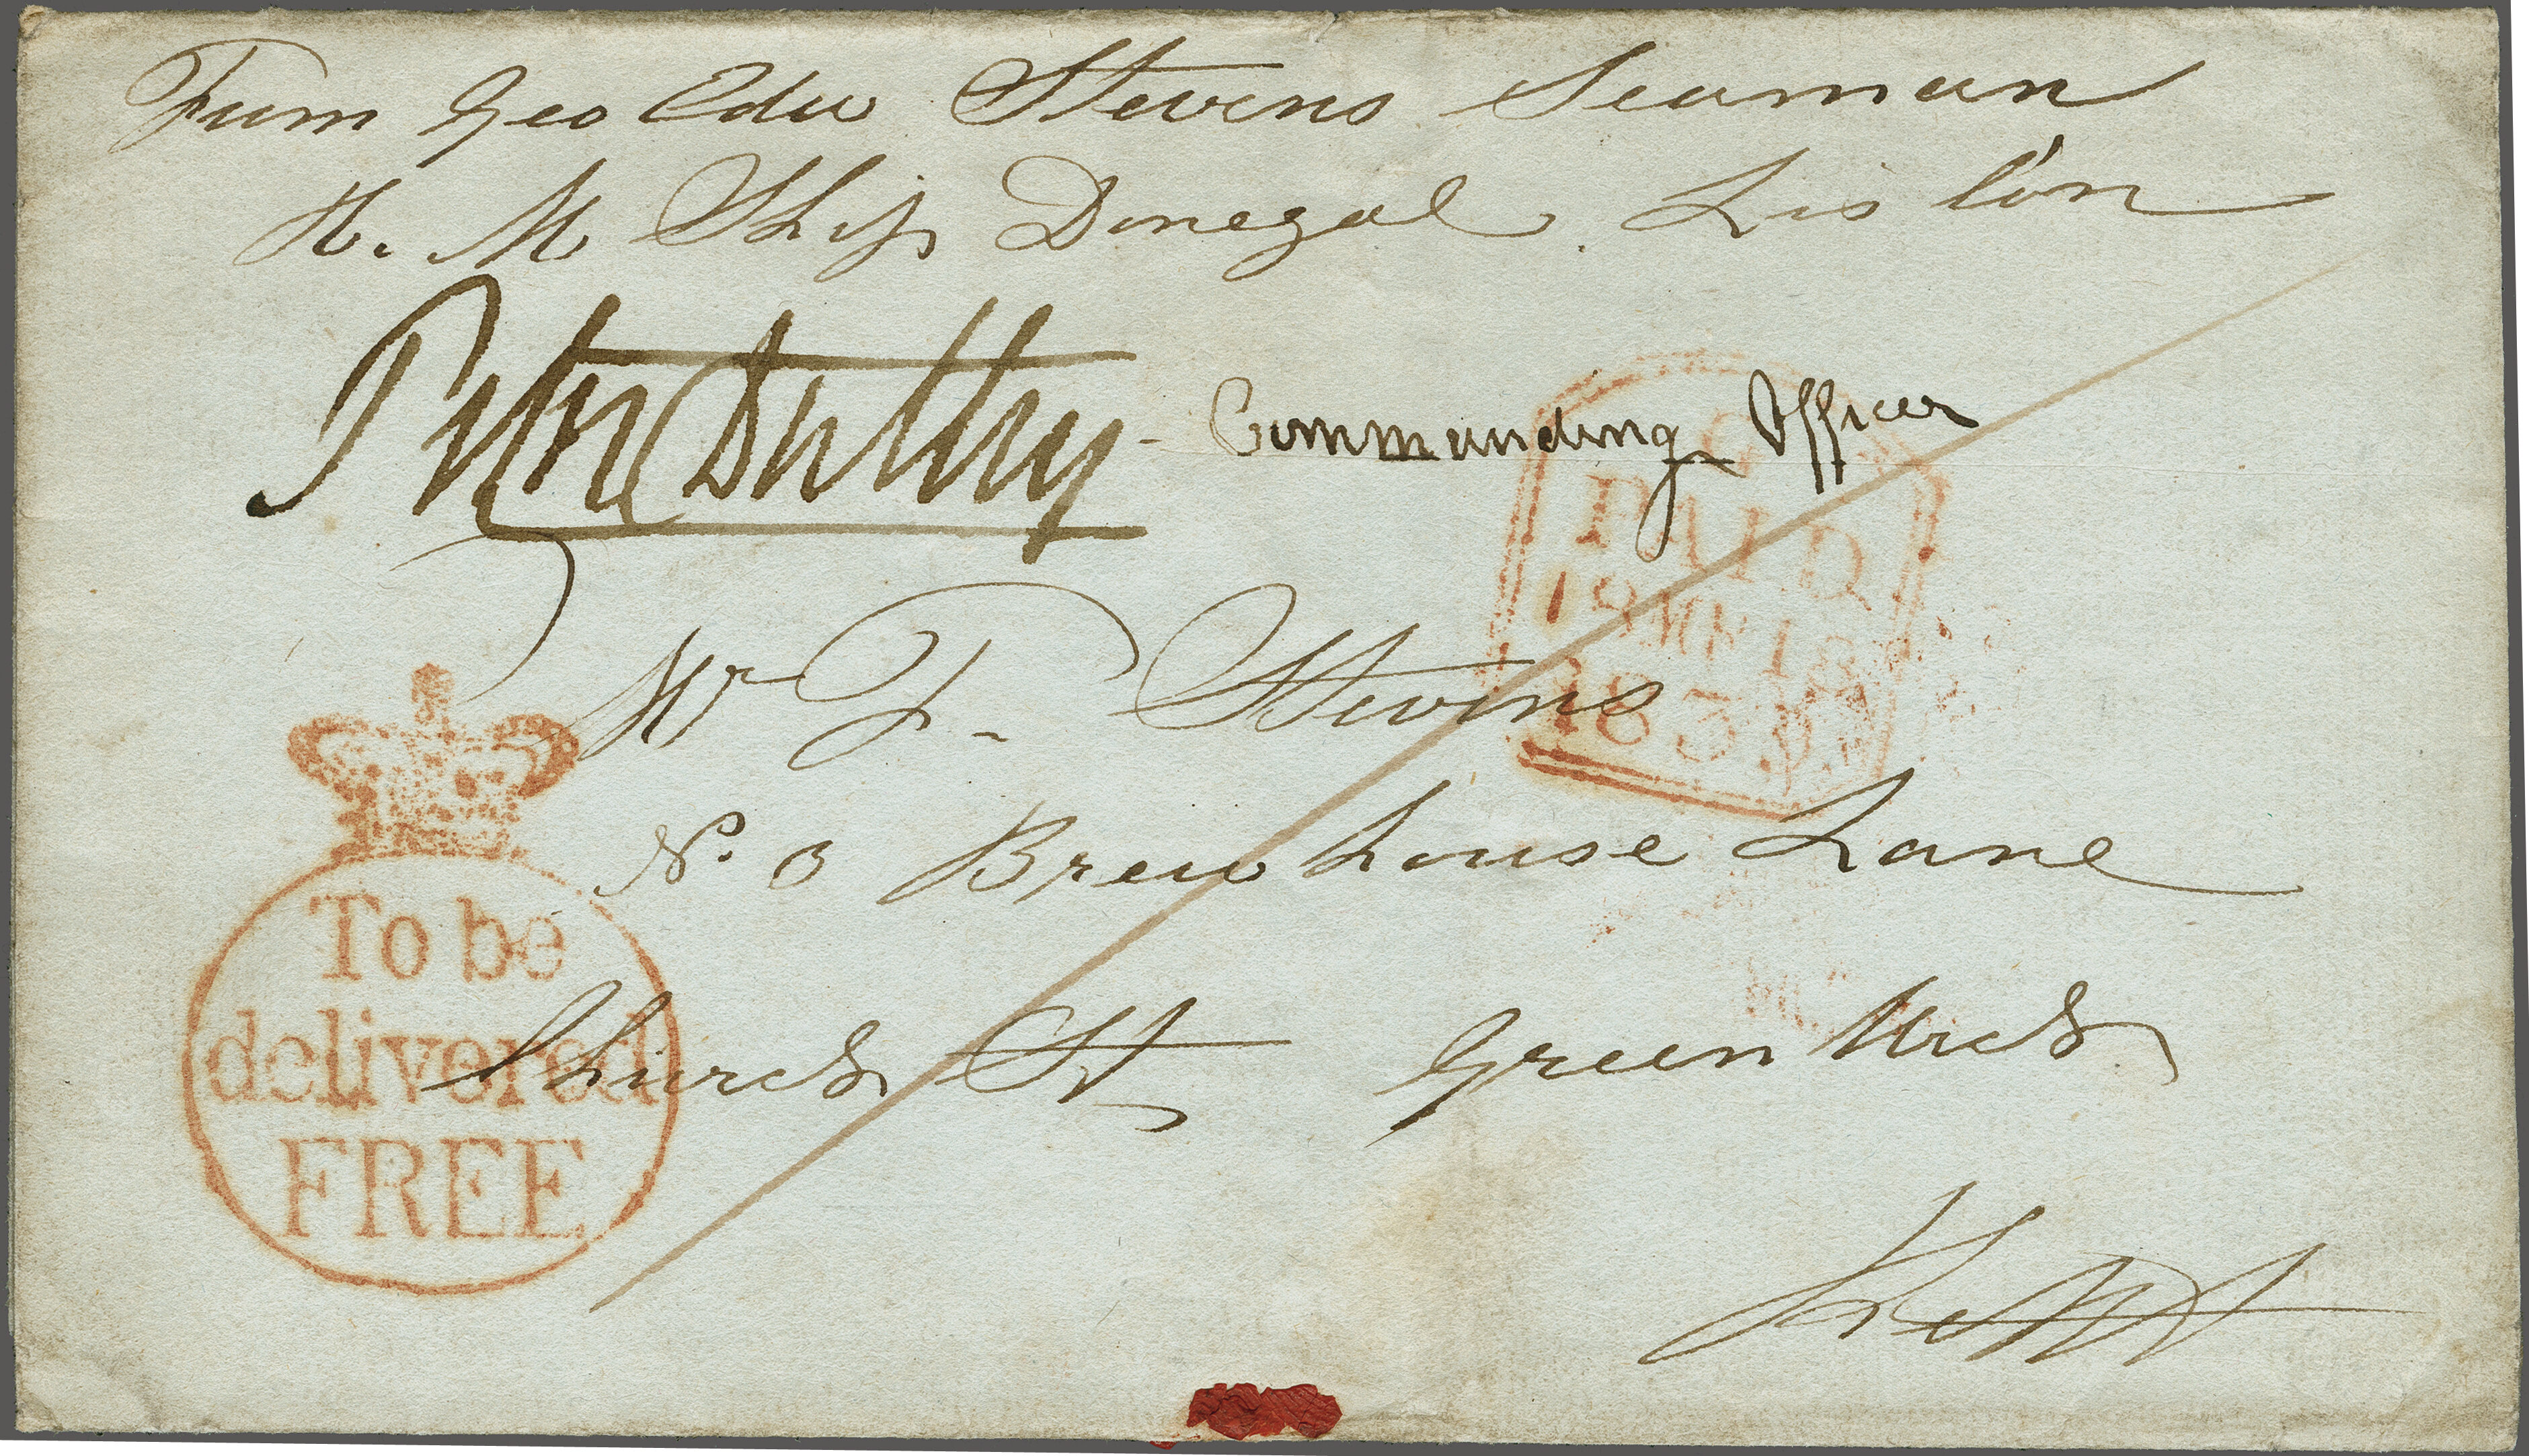 From Geo Edw Stevens Seaman
H. M Ship Donegal. Lisbon
Commanding Officer
PAID
1835
Mr T. Stevens
No. 3 Brew house Lane
Church St Greenwich
Kent
To be
delivered
FREE